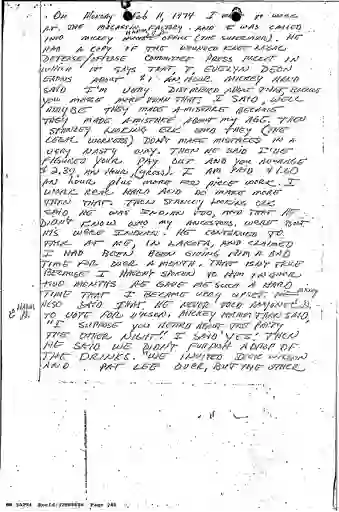 On Monday Feb 11, 1974 I went to work
at the moccasin factory. And I was called
into Mickey office (the supervisor). He
had a copy of the Wounded Knee Legal
Defense/Offense Committee press packet in
which it says that I, Evelyn Deon
earns about $1 an hour. Mickey
said I'm very disturbed about this. Because
you make more than that. I said, well
maybe they made a mistake because
they made a mistake about my age. Then
Stanley Looking Elk said they (the
legal workers) don't make mistakes in a
very nasty way. Then he said I've
figured your pay out and you average
$2.39 an hour (gross). I am paid $1.60
an hour plus more for piece work. I
work real hard and do make more
then that. Then Stanley Looking Elk
said he was Indian too, and that he
didn't know who my ancestors were but
his were Indian. He continued to
talk at me, in Lakota, and claimed
I had been giving him a bad
time for over a month. That isn't true
because I haven't spoken to him in over
two months. He gave me such a hard
time that I became very upset. He
also said that he never told anyone
to vote for Wilson. Mickey then said,
"I suppose you heard about the party
the other night". I said yes. Then
he said we didn't furnish a drop of
the drinks. "We invited Dick Wilson
and Pat Lee over, but the other
Page 248